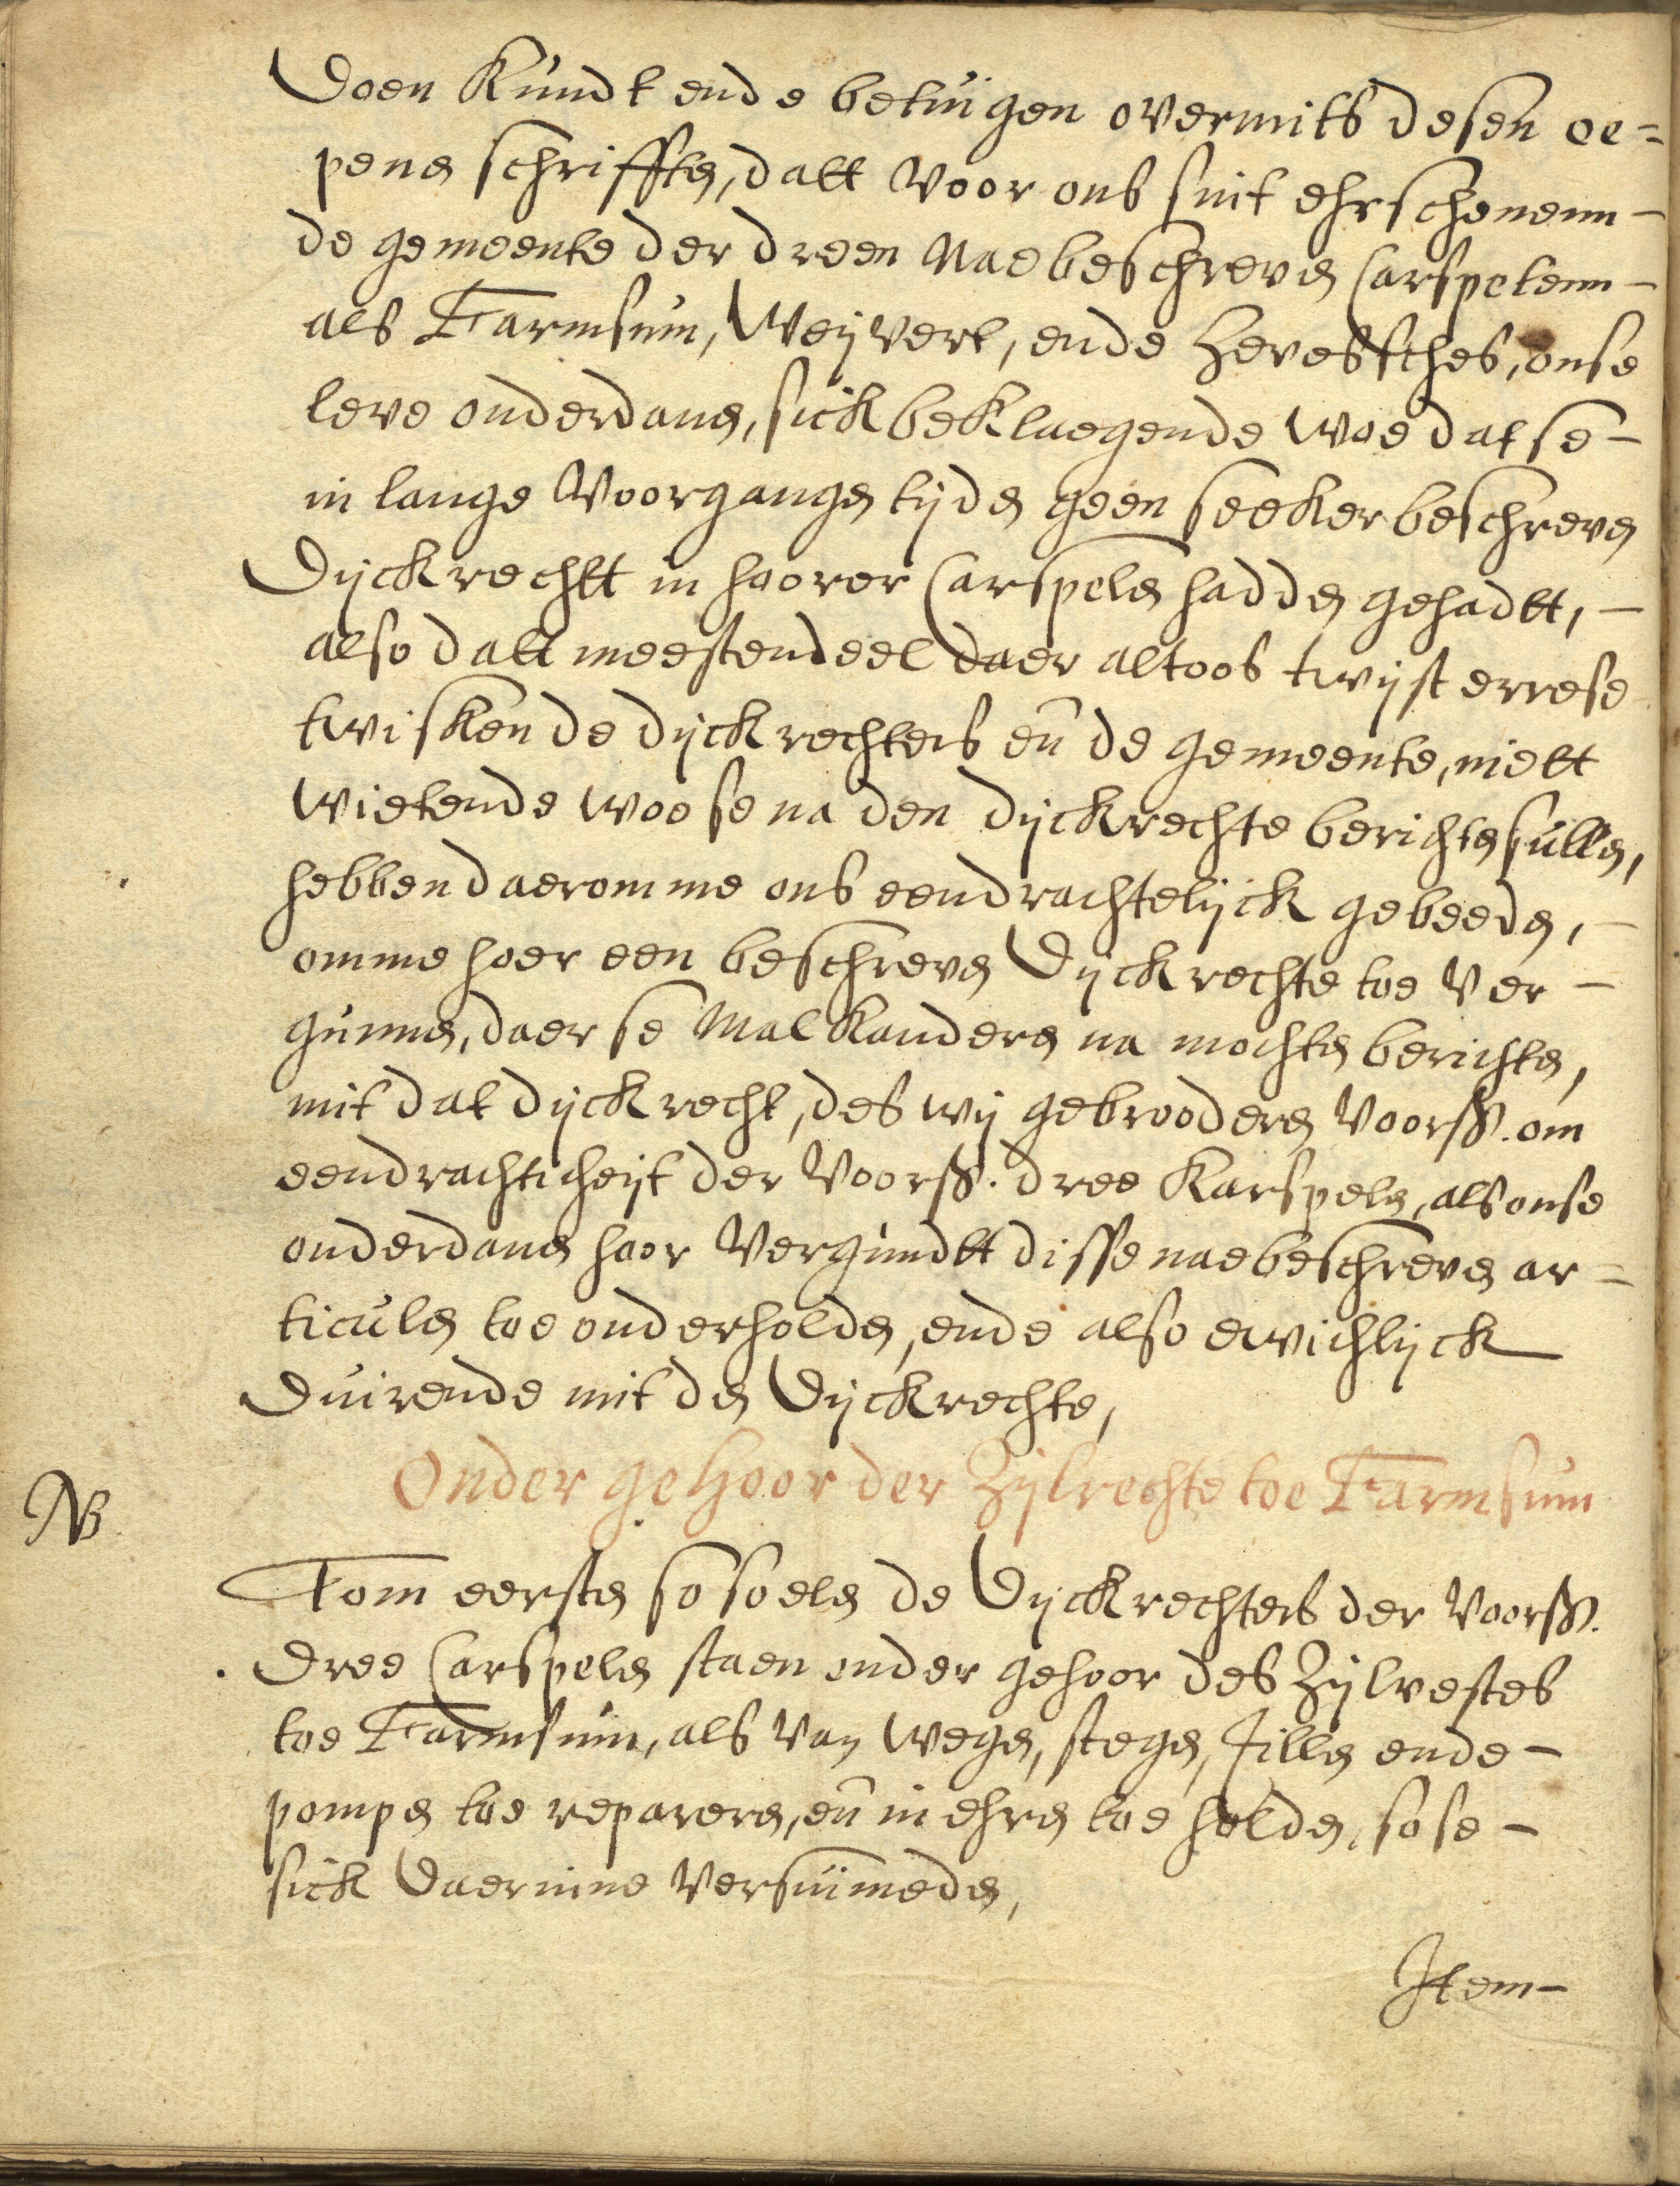 Doen kundt ende betuigen overmits desen oe=
penen schrifften, datt voor ons sint ehrschenenn -
de gemeente der dreen naebeschreven Carspelenn -
als Farmsum, Weyvert, ende Hevesches, onse
leve onderdanen, sick beklaegende woe dat se -
in lange voorgangen tijden geen seeker beschreven
Dijckrechtt in hoorer Carspelen hadden gehadtt, -
also datt meestendeel daer altoos twijst errese
twisken de dijckrechters eñ de gemeente, niett
wietende woe se na den dijckrechte berichten sullen,
hebben daeromme ons eendrachtelijck gebeeden, -
omme hoer een beschreven Dijckrechte toe ver -
gunnen, daer se malkanderen na mochten berichten,
mit dat dijckrecht, des wij gebrooderen voorss. om
eendrachticheijt der voorss. dree Karspelen, als onse
onderdanen hoor vergundtt disse naebeschreven ar =
ticulen toe onderholden, ende also ewichlijck
Duirende mit den Dijckrechte,
Onder gehoor der Zijlrechte toe Farmsum
NB
Tom eersten so soelen de Dijckrechters der voorss.
Dree Carspelen staen onder gehoor des Zijlvestes
toe Farmsum, als van wegen, stegen, tillen ende -
pompen toe repareren, eñ in ehren toe holden, so se -
sick daerinne versuimeden,
Item -